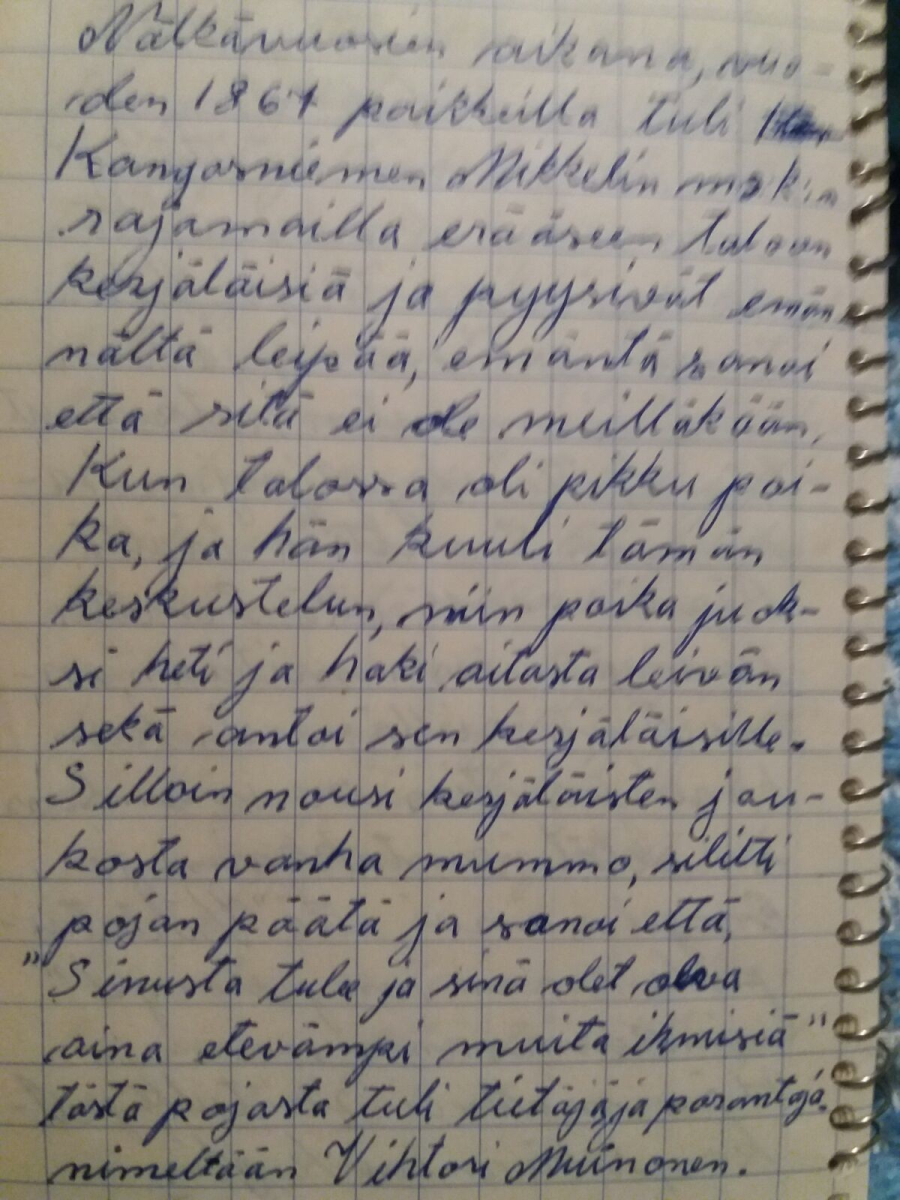 Nälkävuosien aikana, vuo-
den 1867 paikkeilla tuli
Kangasniemen Mikkelin mlk:n
rajamailla erääseen taloon
kerjäläisiä ja pyysivät emän-
nältä leipää, emäntä sanoi
että sitä ei ole meilläkään,
Kun talossa oli pikku poi-
ka, ja hän kuuli tämän
keskustelun, niin poika juok-
si heti ja haki aitasta leivän
sekä antoi sen kerjäläisille.
Silloin nousi kerjäläisten jou-
kosta vanha mummo, silitti
pojan päätä ja sanoi että,
"Sinusta tulee ja sinä olet oleva
aina etevämpi muita ihmisiä"
tästä pojasta tuli tietäjä ja parantaja.
nimeltään Vihtori Miinonen.